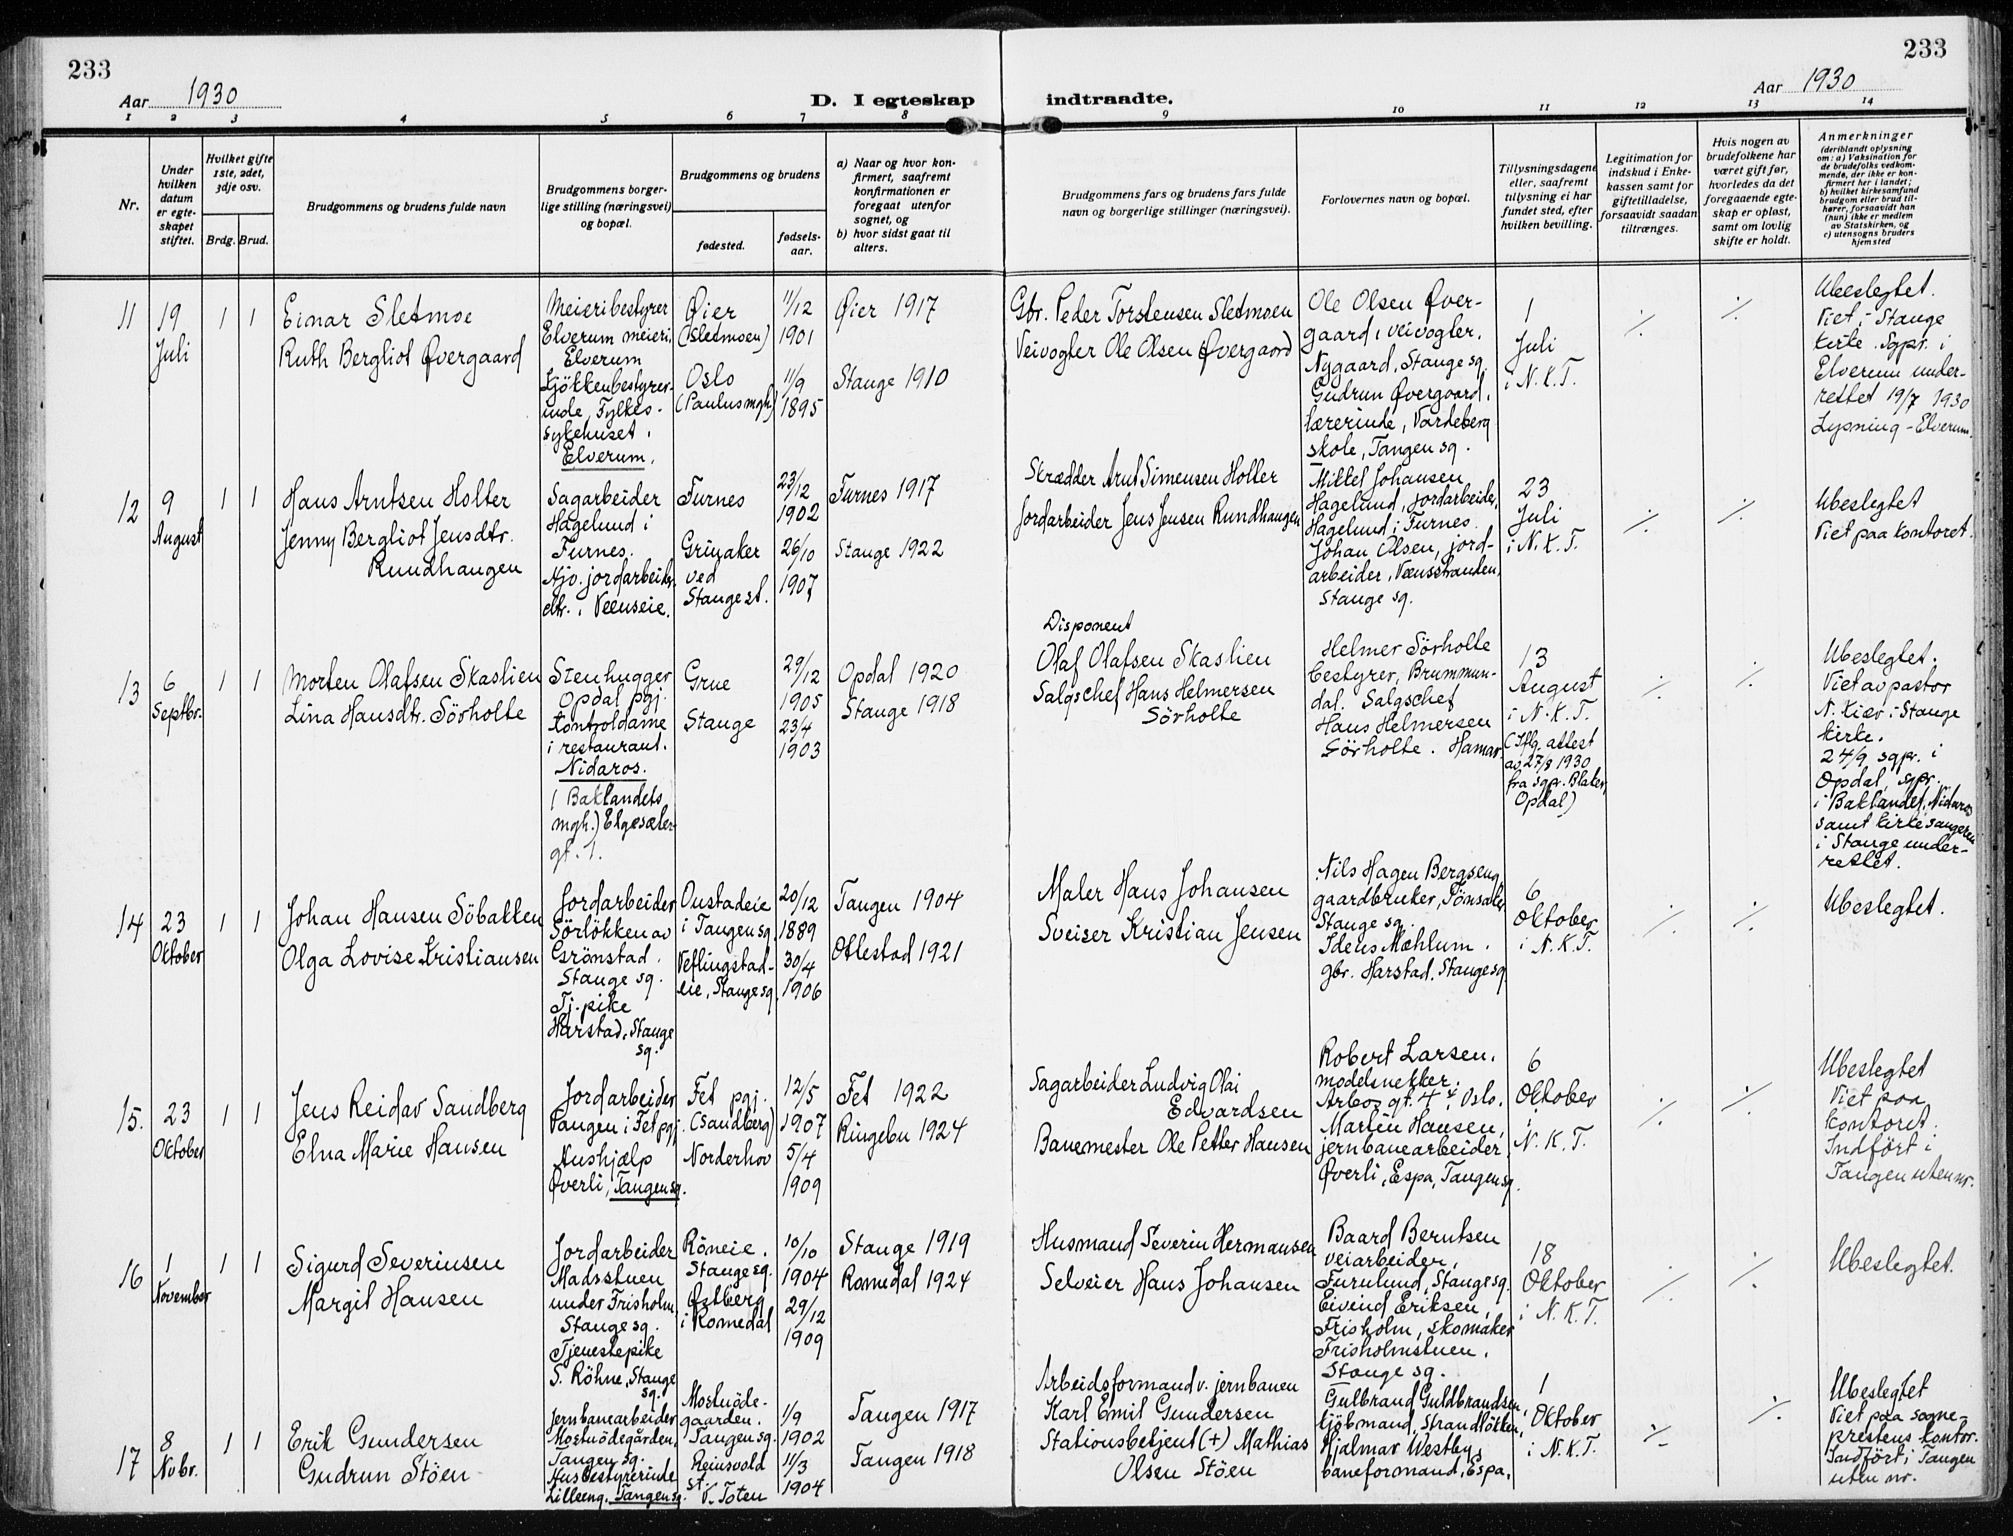 233
Aar 1930
D. I egteskap
indtraadte.
Aar 1930
233
1 2 3 4 5 6 7 8 9 10 11 12 13 14
Nr.
Under hvilken datum er egte-skapet stiftet.
Hvilket gifte 1ste, 2det, 3dje osv.
Brdg. Brud.
Brudgommens og brudens fulde navn
Brudgommens borger-lige stilling (næringsvei) og bopæl.
Brudgommens og brudens
fødested.
fødsels-aar.
a) Naar og hvor kon-firmert, saafremt konfirmationen er foregaat utenfor sognet, og
b) hvor sidst gaat til alters.
Brudgommens fars og brudens fars fulde navn og borgerlige stillinger (næringsvei).
Forlovernes navn og bopæl.
Tillysningsdagene eller, saafremt tillysning ei har fundet sted, efter hvilken bevilling.
Legitimation for indskud i Enke-kassen samt for giftetilladelse, forsaavidt saadan tiltrænges.
Hvis nogen av brudefolkene har været gift før, hvorledes da det foregaaende egte-skap er opløst, samt om lovlig skifte er holdt.
Anmerkninger (deriblandt oplysning om: a) Vaksination for de brudefolks vedkom-mende, der ikke er kon-firmert her i landet; b) hvilket kirkesamfund brudgom eller brud til-hører, forsaavidt han (hun) ikke er medlem av Statskirken, og c) utensogns bruders hjemsted
11
19
Juli
1 1
Einar Sletmoe
Ruth Bergliot Øvergaard
Meieribestyrer
Elverum meieri,
Elverum
Kjökkenbestyrer-
inde, Fylkes-
sykehuset,
Elverum.
Øier
(Sletmoen)
Oslo
(Paulus mgh.)
11/12
1901
11/9
1895
Øier 1917
Stange 1910
Gbr. Peder Torstensen Sletmoen
Veivogter Ole Olsen Øvergaard
Ole Olsen Øver-
gaard, veivogter,
Nygaard, Stange sg.
Gudrun Øvergaard,
lærerinde, Vardeberg
skole, Tangen sg.
1
Juli
i N.K.T.
./.
./.
Ubeslegtet.
Viet i Stange
kirke. Sgpr. i
Elverum under-
rettet 19/7 1930
Lysning - Elverum.
12
9
August
1 1
Hans Arntsen Holter
Jenny Bergliot Jensdtr.
Rundhaugen
Sagarbeider
Hagelund i
Furnes.
Hjv. jordarbeider
dtr., Veenseie.
Furnes
Grinaker
ved
Stange st.
23/12
1902
26/10
1907
Furnes 1917
Stange 1922
Skrædder Arnt Simensen Holter
Jordarbeider Jens Jensen Rundhaugen
Mikkel Johansen
Hagelund, jordarbeider,
Hagelund i Furnes.
Johan Olsen, jord-
arbeider, Veensstranden,
Stange sg.
23
Juli
i N.K.T.
./.
./.
Ubeslegtet
Viet paa kontoret.
13
6
Septbr.
1 1
Morten Olafsen Skaslien
Lina Hansdtr. Sörholte
Stenhugger
Opdal pgj.
Kontroldame
i restaurant.
Nidaros.
(Baklandets
mgh.) Elgesæter-
gt. 1.
Grue
Stange
29/12
1905
23/4
1903
Opdal 1920
Stange 1918
Disponent
Olaf Olafsen Skaslien
Salgschef Hans Helmersen
Sörholte
Helmer Sörholte
bestyrer, Brummun-
dal. Salgschef
Hans Helmersen
Sörholte. Hamar.
13
August
i N.K.T.
(Iflg. attest
av 27/8 1930
fra sgpr. Blaker,
Opdal)
./.
./.
Ubeslegtet.
Viet av pastor
N. Kiær i Stange
kirke.
24/9 sgpr. i
Opdal, sgpr.
i Baklandet, Nidaros
samt kirkesangeren
i Stange under-
rettet.
14
23
Oktober
1 1
Johan Hansen Söbakken
Olga Lovise Kristiansen
Jordarbeider
Sörlökken av
Grönstad.
Stange sg.
Tj. pike
Harstad, Stange
sg.
Oustadeie
i Tangen sg.
Veflingstad-
eie, Stange sg.
20/12
1889
30/4
1906
Tangen 1904
Ottestad 1921
Maler Hans Johansen
Sveiser Kristian Jensen
Nils Hagen Bergseng
gaardbruker, Tönsaker
Stange sg.
Ideus Mæhlum.
gbr. Harstad, Stange sg.
6
Oktober
i N.K.T.
./.
./.
Ubeslegtet.
15.
23
Oktober
1 1
Jens Reidar Sandberg
Elna Marie Hansen
Jordarbeider
Tangen i Fet pgj.
Hushjælp
Øverli, Tangen sg.
Fet pgj.
(Sandberg)
Norderhov
12/5
1907
5/4
1909
Fet 1922
Ringebu 1924
Sagarbeider Ludvig Olai
Edvardsen
Banemester Ole Petter Hansen
Robert Larsen,
modelsnekker.
Arbos gt. 4 IV, Oslo.
Martin Hansen,
jernbanearbeider,
Øverli, Espa, Tangen sg.
6
Oktober
i
N.K.T.
./.
./.
Ubeslegtet
Viet paa
kontoret.
Indfört i
Tangen uten nr.
16
1
November
1 1
Sigurd Severinsen
Margit Hansen
Jordarbeider
Madsstuen
under Frisholm,
Stange sg.
Tjenestepike
S. Röhne, Stange
sg.
Röneie,
Stange sg.
Østberg
i Romedal
10/10
1904
29/12
1909
Stange 1919
Romedal 1924
Husmand Severin Hermansen
Selveier Hans Johansen
Baard Berntsen
veiarbeider,
Furulund, Stange sg.
Eivind Eriksen,
Frisholm, skomaker
Frisholmstuen,
Stange sg.
18
Oktober
i N.K.T.
./.
./.
Ubeslegtet.
17
8
Nvbr.
1 1
Erik Gundersen
Gudrun Stöen
Jernbanearbeider
Mostuödegården,
Tangen sg.
Husbestyrerinde
Lilleeng, Tangen sg.
Mostuöde-
gaarden.
Tangen sg.
Reinsvold
st.
V. Toten
1/9
1902
11/3
1904
Tangen 1917
Tangen 1918
Arbeidsformand v. jernbanen
Karl Emil Gundersen
Stationsbetjent (+) Mathias
Olsen Stöen
Gulbrand Guldbrandsen,
kjöbmand, Strandlökken,
Hjalmar Westby,
baneformand, Espa.
1
Oktober
i N.K.T.
./.
./.
Ubeslegtet
Viet paa sogne-
prestens kontor.
Indfört i Tangen
uten nr.